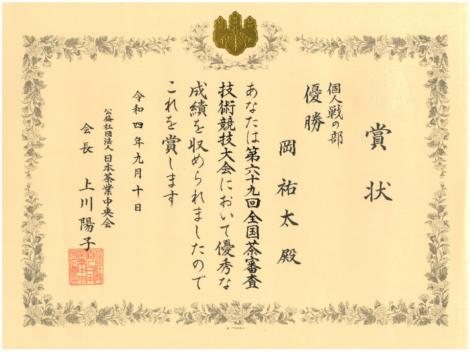 賞状
個人戦の部
優勝
岡祐太殿
あなたは第六十九回全国茶審査
技術競技大会において優秀な
成績を収められましたので
これを賞します
令和四年九月十日
公益社団法人日本茶業中央会
会長 上川陽子